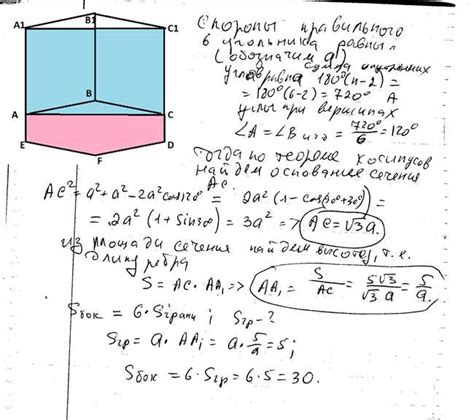 A1
B1
C1
B
A
C
E
D
F
Стороны правильного
6 угольника равны,
(обозначим a)
сумма
углов равна 180°(n-2) =
= 180°(6-2) = 720°
углы при вершинах
∠A = ∠B и т.д = 720°/6 = 120°
Тогда по теореме косинусов
найдем основание сечения
AC.
AC² = a² + a² - 2a² cos120° = 2a² (1 - cos(90°+30°) =
= 2a² (1 + sin30°) = 3a² => AC = √3 a.
из площади сечения найдем высоту, т.е.
длину ребра
S = AC · AA₁ => AA₁ = S/AC = 5√3/√3 a = 5/a.
Sбок = 6 · Sграни ; Sгр - ?
Sгр = a · AA₁ = a · 5/a = 5;
Sбок = 6 · Sгр = 6 · 5 = 30.